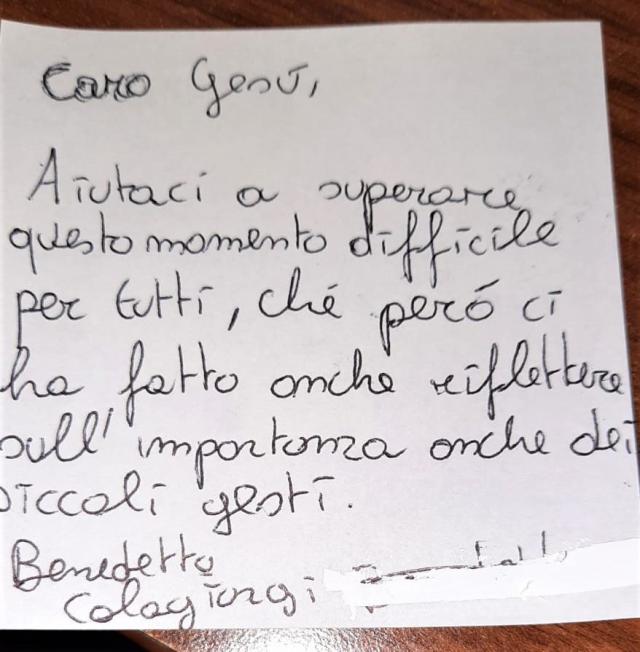 Caro Gesú,
Aiutaci a superare
questo momento difficile
per tutti, ché peró ci
ha fatto anche riflettere
sull'importanza anche dei
piccoli gesti.
Benedetto
Colagiorgi